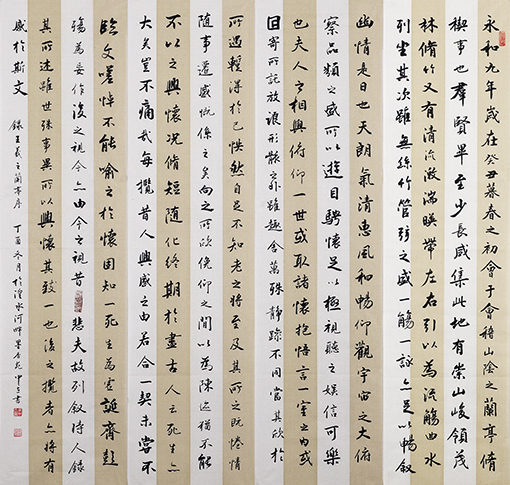 永和九年歲在癸丑暮春之初會于會稽山陰之蘭亭脩
禊事也羣賢畢至少長咸集此地有崇山峻領茂
林脩竹又有清流激湍暎帶左右引以為流觴曲水
列坐其次雖無絲竹管弦之盛一觴一詠亦足以暢敘
幽情是日也天朗氣清惠風和暢仰觀宇宙之大俯
察品類之盛所以遊目騁懷足以極視聽之娛信可樂
也夫人之相與俯仰一世或取諸懷抱悟言一室之內或
因寄所託放浪形骸之外雖趣舍萬殊靜躁不同當其欣於
所遇輕得於己怏然自足不知老之將至及其所之既惓情
隨事遷感慨係之矣向之所欣俛仰之間以為陳迹猶不能
不以之興懷況脩短隨化終期於盡古人云死生亦
大矣豈不痛哉每攬昔人興感之由若合一契未嘗不
臨文嗟悼不能喻之於懷固知一死生為虛誕齊彭
殤為妄作後之視今亦由今之視昔悲夫故列敘時人錄
其所述雖世殊事異所以興懷其致一也後之攬者亦將有
感於斯文 錄王羲之蘭亭序 丁酉冬月於水河畔墨香苑書